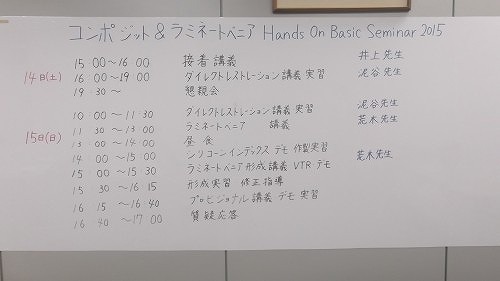 コンポジット & ラミネートベニア Hands On Basic Seminar 2015
14日(土) 15:00〜16 00 接着 講義 井上先生
16:00〜19 00 ダイレクトレストレーション 講義 実習 泥谷先生
19:30〜 懇親会
15日(日) 10:00〜11:30 ダイレクトレストレーション 講義 実習 泥谷先生
11 30〜13 00 ラミネートベニア 講義 荒木先生
13 00〜14:00 昼 食
14 00〜15:00 シリコーンインデックス デモ 作製実習 荒木先生
15 00〜15 30 ラミネートベニア 形成講義 VTR・デモ
15 30〜16 15 形成実習 修正指導
16 15〜16:40 プロビジョナル 講義 デモ 実習
16 40〜17 00 質疑応答